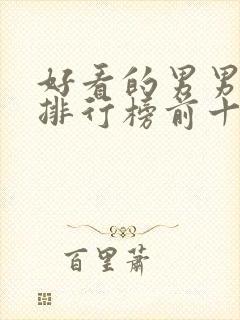 好看的男男
排行榜前十
百里萧